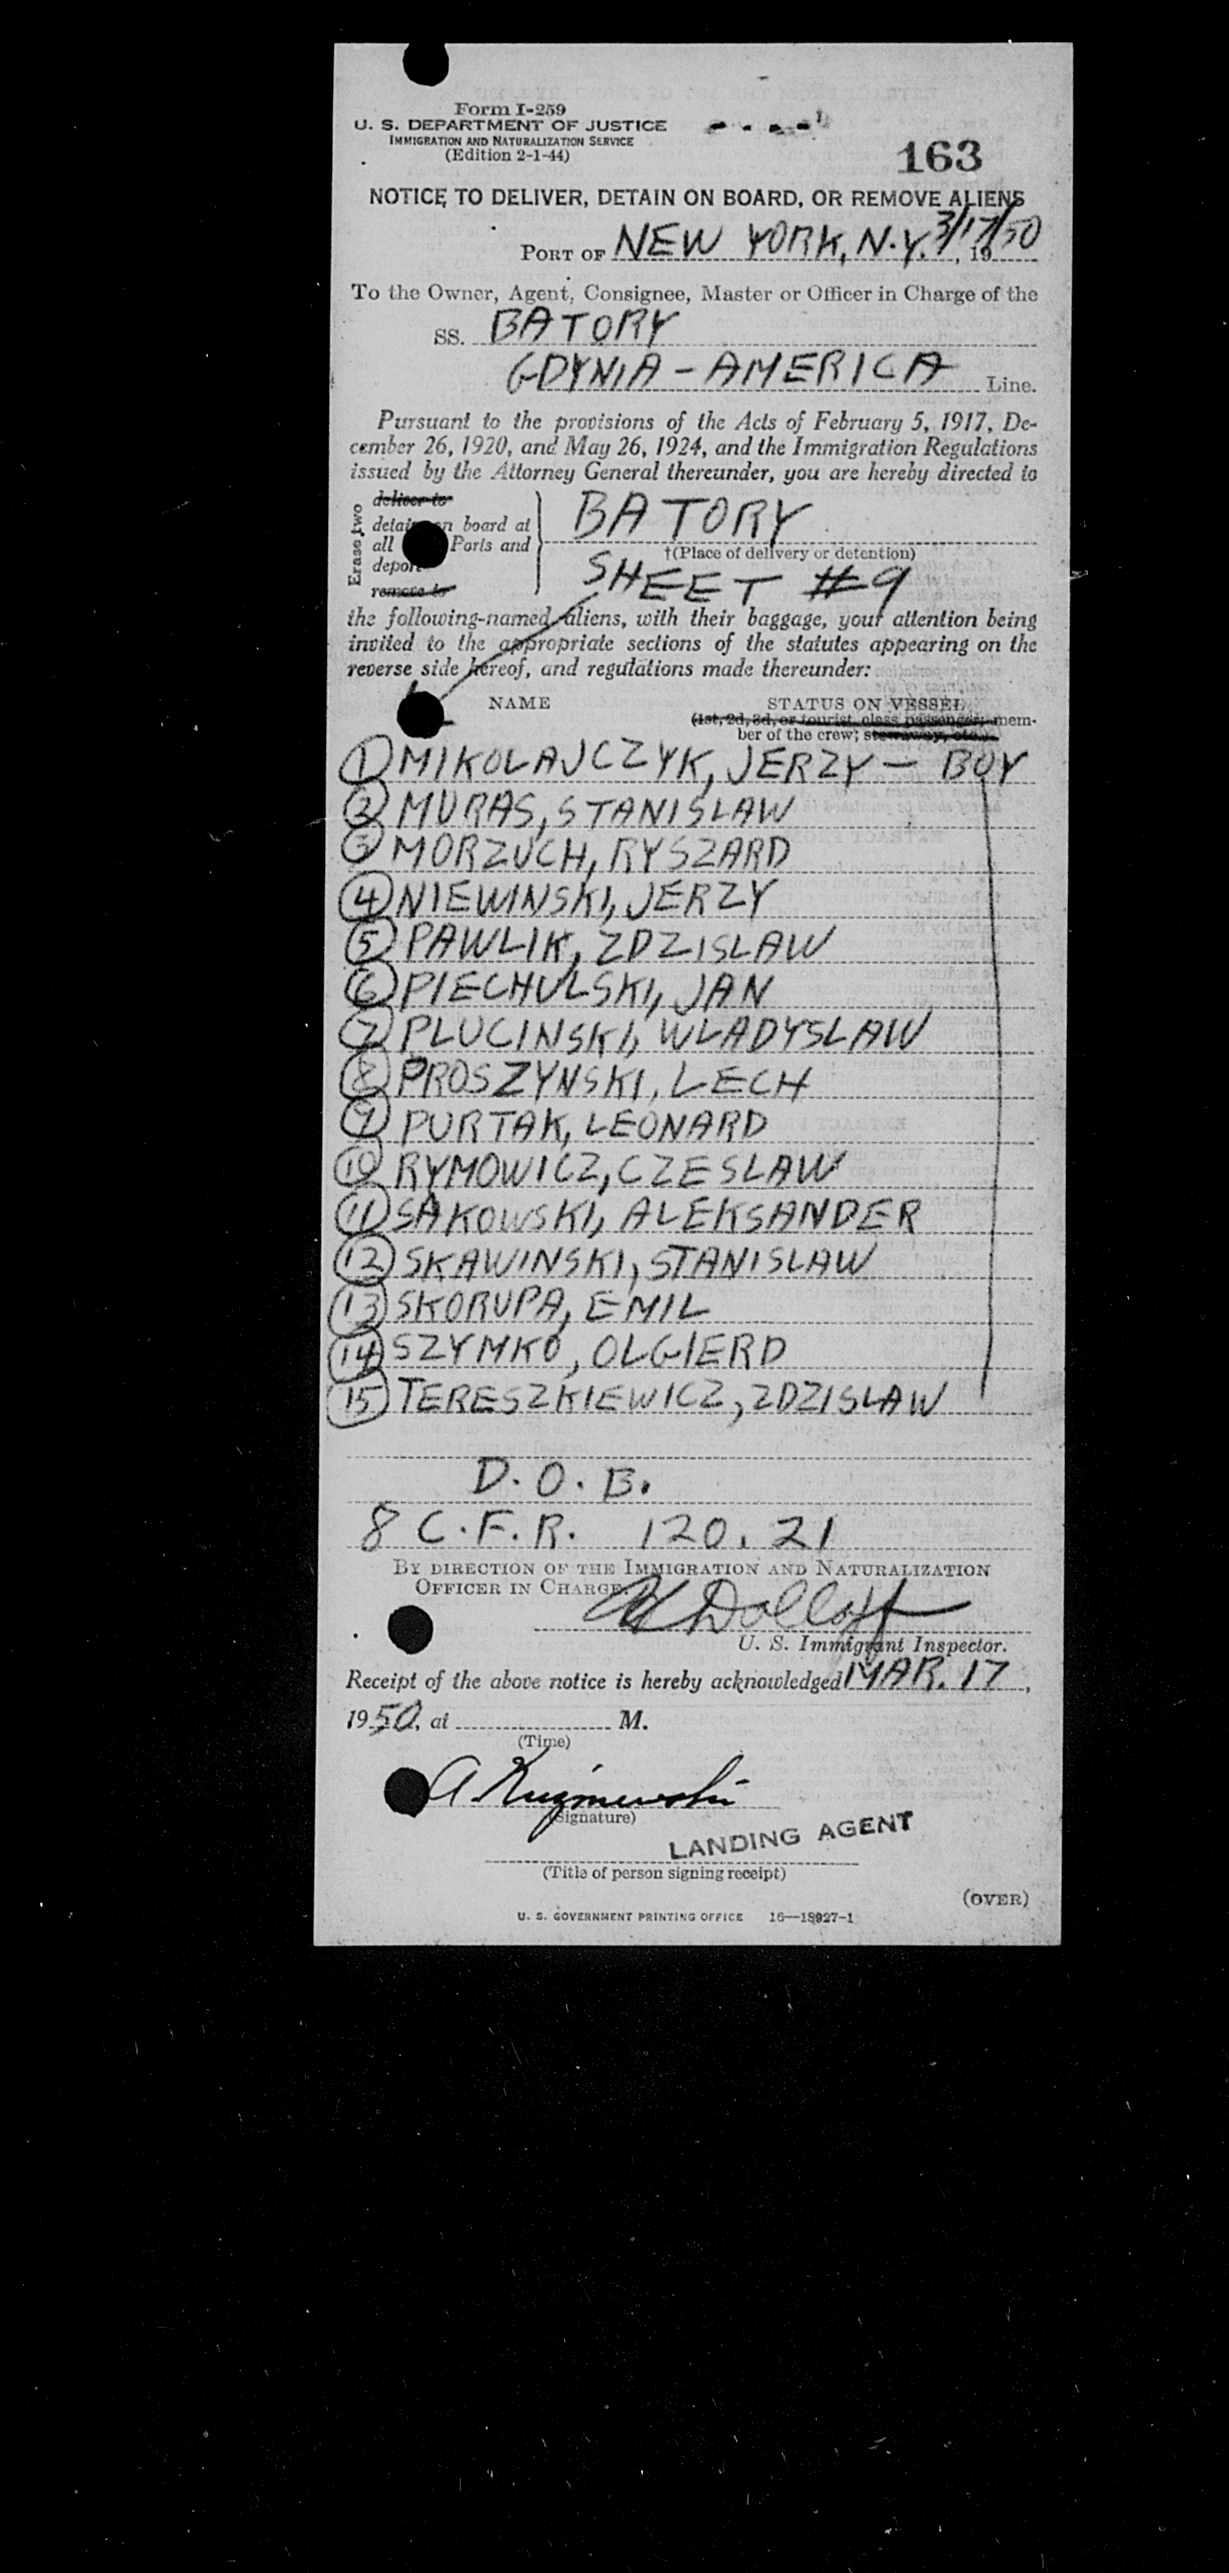 Form I-259
U. S. DEPARTMENT OF JUSTICE
IMMIGRATION AND NATURALIZATION SERVICE
(Edition 2-1-44)
163
NOTICE TO DELIVER, DETAIN ON BOARD, OR REMOVE ALIENS
PORT OF NEW YORK, N.Y. 3/17/50, 19
To the Owner, Agent, Consignee, Master or Officer in Charge of the
SS. BATORY
GDYNIA - AMERICA Line.
Pursuant to the provisions of the Acts of February 5, 1917, De-
cember 26, 1920, and May 26, 1924, and the Immigration Regulations
issued by the Attorney General thereunder, you are hereby directed to
Erase two
deliver to
detain on board at
all Ports and
deport
remove to
BATORY
†(Place of delivery or detention)
SHEET #9
the following-named aliens, with their baggage, your attention being
invited to the appropriate sections of the statutes appearing on the
reverse side hereof, and regulations made thereunder:
NAME STATUS ON VESSEL
(1st, 2d, 3d, or tourist class passenger; mem-
ber of the crew; stowaway, etc.)
1 MIKOLAJCZYK, JERZY - BOY
2 MURAS, STANISLAW
3 MORZUCH, RYSZARD
4 NIEWINSKI, JERZY
5 PAWLIK, ZDZISLAW
6 PIECHULSKI, JAN
7 PLUCINSKI, WLADYSLAW
8 PROSZYNSKI, LECH
9 PURTAK, LEONARD
10 RYMOWICZ, CZESLAW
11 SAKOWSKI, ALEKSANDER
12 SKAWINSKI, STANISLAW
13 SKORUPA, EMIL
14 SZYMKO, OLGIERD
15 TERESZKIEWICZ, ZDZISLAW
D.O.B.
8 C.F.R. 120.21
BY DIRECTION OF THE IMMIGRATION AND NATURALIZATION
OFFICER IN CHARGE
Dolloff
U. S. Immigrant Inspector.
Receipt of the above notice is hereby acknowledged MAR. 17,
1950, at M.
(Time)
A
(Signature)
LANDING AGENT
(Title of person signing receipt)
(OVER)
U. S. GOVERNMENT PRINTING OFFICE 16—18927-1